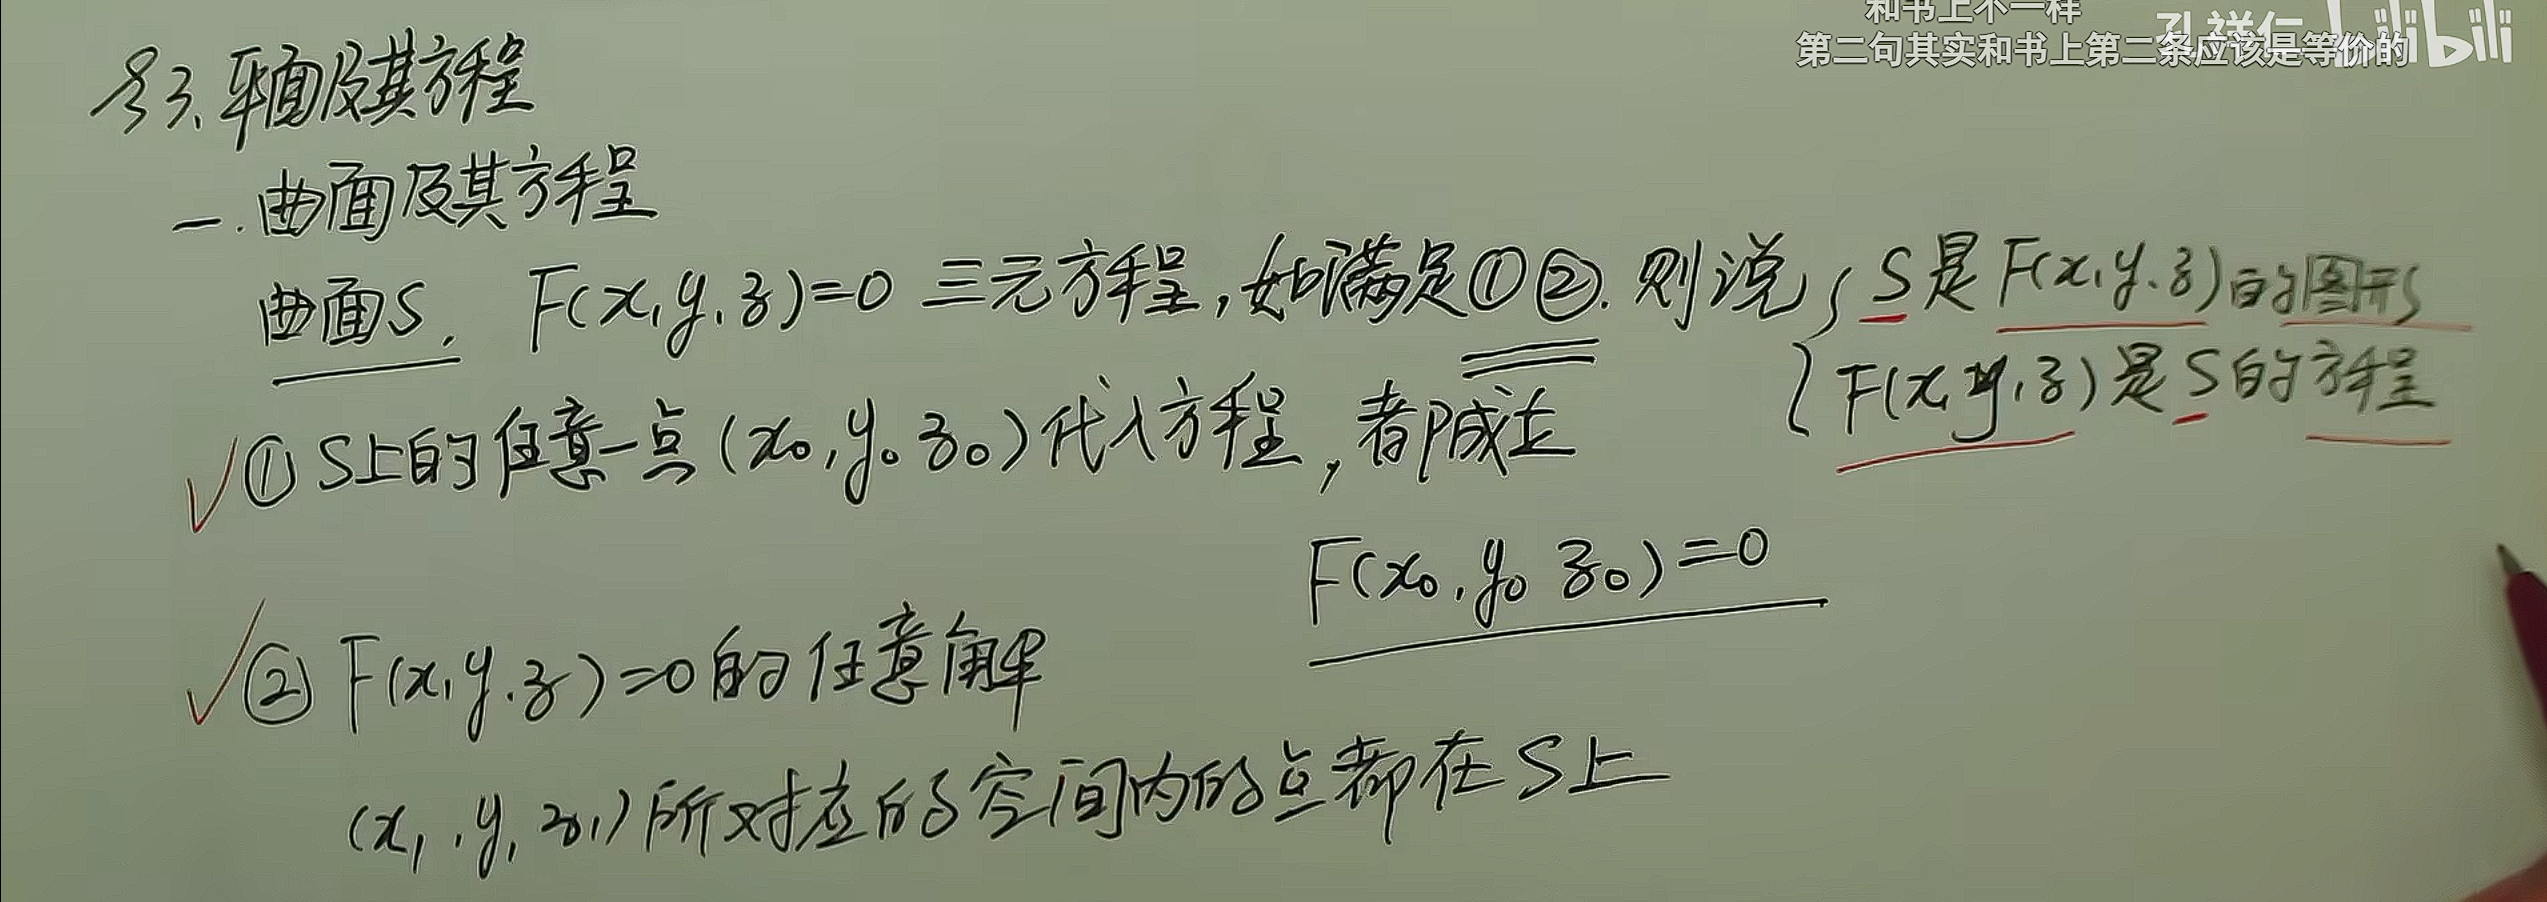 和书上不一样
第二句其实和书上第二条应该是等价的
孔祥仁 bilibili
§3、平面及其方程
一.曲面及其方程
曲面S, F(x,y,z)=0 三元方程,如满足①②.则说{S是F(x,y,z)的图形
F(x,y,z)是S的方程
✓①S上的任意一点(x₀,y₀ z₀)代入方程,都成立
F(x₀,y₀ z₀)=0
✓②F(x,y,z)=0的任意解
(x₁,y₁ z₁)所对应的空间内的点都在S上